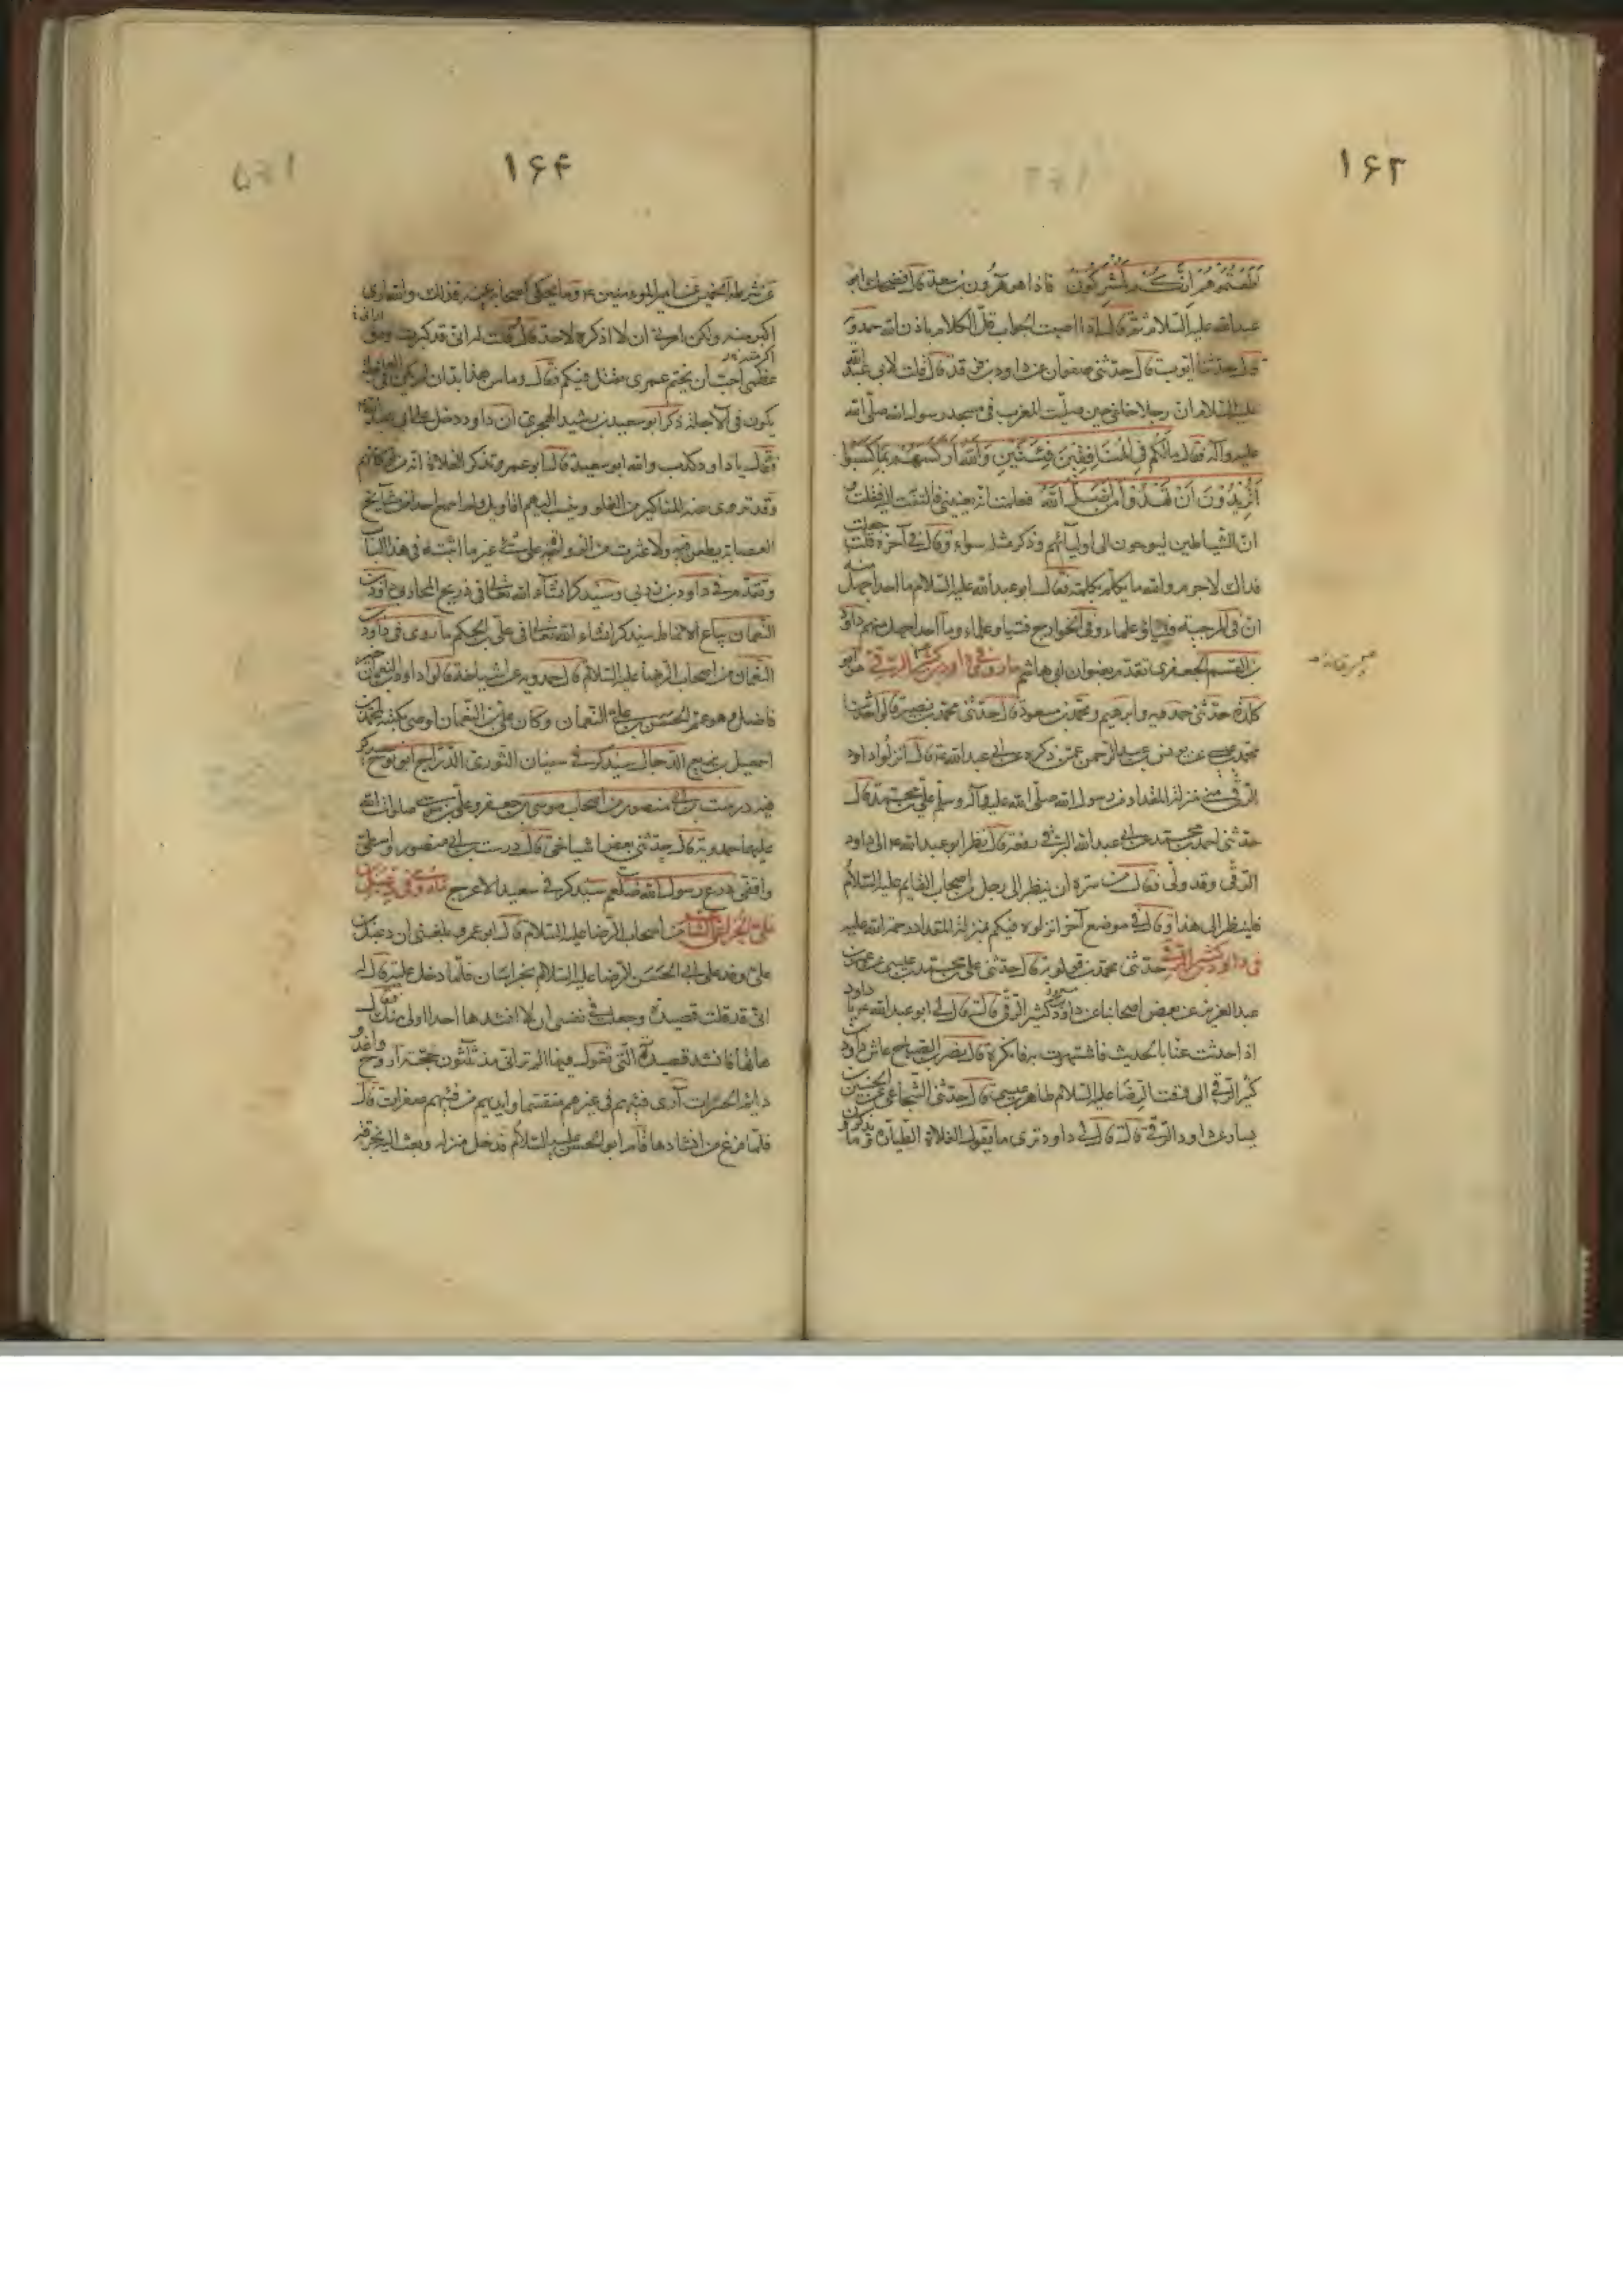 ۱۶۳
أطعتموهم إنكم لمشركون فاذا هو هرون بن سعد قال فضحك ابو
عبدالله عليه السلام ثم قال اذا اصبت الجواب قل الكلام باذن الله حمدويه
قال حدثنا ايوب قال حدثنى صفوان عن داود بن فرقد قال قلت لابى عبدالله
عليه السلام ان رجلا خلفى حين صليت المغرب فى مسجد رسول الله صلى الله
عليه وآله فقال مالكم في المنافقين فئتين والله أركسهم بما كسبوا
أتريدون أن تهدوا من أضل الله فعلمت انه يعنينى فالتفت اليه فقلت
ان الشياطين ليوحون الى اوليائهم وذكر مثله سواء وقال فى آخره قلت جعلت
فداك لا جرم والله ما يكلم بكلمة فقال ابو عبدالله عليه السلام ما احد اجهل منهم
ان فى المرجئة فتيا وعلماء وفى الخوارج فتيا وعلماء وما احد اجهل منهم داود
بن القسم الجعفرى تقدم بعنوان ابى هاشم ما روى فى داود بن كثير الرقى
حدثنى حمدويه وابرهيم ومحمد بن مسعود قال حدثنى محمد بن نصير قالوا حدثنا
محمد بن عيسى عن يونس بن عبدالرحمن عمن ذكره عن ابى عبدالله قال انزلوا داود
الرقى منى منزلة المقداد من رسول الله صلى الله عليه وآله وسلم على بن محمد قال
حدثنى احمد بن محمد عن ابى عبدالله البرقى رفعه قال نظر ابو عبدالله الى داود
الرقى وقد ولى فقال من سره ان ينظر الى رجل من اصحاب القايم عليه السلام
فلينظر الى هذا وقال فى موضع آخر انزلوه فيكم بمنزلة المقداد رحمة الله عليه
فى داود بن كثير الرقى حدثنى محمد بن قولويه قال حدثنى على بن محمد بن عيسى عن عمر بن
عبدالعزيز عن بعض اصحابنا عن داود بن كثير الرقى قال قال لى ابو عبدالله يا داود
اذا حدثت عنا بالحديث فاشتهرت به فانكره قال نصر بن الصباح عاش داود بن
كثير الرقى الى وقت الرضا عليه السلام طاهر بن عيسى قال حدثنى الشجاعى عن الحسين بن
بشار عن داود الرقى قال قال لى داود ترى ما يقول الغلاة الطيارة وما يذكرون
۱۶۴
عن شرطة الخميس عن امير المومنين وما يحكى اصحابه عنه فذلك والله ارانى
اكبر منه ولكن امرنى ان لا اذكره لاحد قال وقلت له انى قد كبرت ودق
عظمى احب ان يختم عمرى بقتل فيكم فقال وما من هذا بد ان لم يكن فى العاجلة
يكون فى الآجلة ذكر ابو سعيد بن رشيد الهجرى ان داود دخل على ابى عبدالله
فقال يا داود كذب والله ابو سعيد قال ابو عمرو وتذكر الغلاة انه من اركانهم
وقد تروى عنه المناكير من الغلو وينسب اليهم اقاويلهم ولم اسمع احدا من مشايخ
العصابة يطعن فيه ولا عثرت من الرواية على شئ غير ما اثبته فى هذا الباب
وتقدم فى داود بن زربى وسيذكر انشاء الله تعالى فى ذريح المحاربى داود بن
النعمان بياع الانماط سيذكر انشاء الله تعالى فى على بن الحكم ما روى فى داود بن
النعمان من اصحاب الرضا عليه السلام قال حمدويه عن اشياخه قالوا داود بن النعمان خير
فاضل وهو عم الحسن بن على بن النعمان وكان على بن النعمان اوصى بكتبه لمحمد بن
اسمعيل بن بزيع الدجال سيذكر فى سفيان الثورى
فيه درست بن ابى منصور من اصحاب موسى بن جعفر وعلى بن موسى صلوات الله
عليهما حمدويه قال حدثنى بعض اشياخى قال درست بن ابى منصور واسطى
واقفى درع رسول الله صلعم سيذكر فى سعيد الاعرج ما روى فى دعبل بن
على الخزاعى الشاعر من اصحاب الرضا عليه السلام قال ابو عمرو بلغنى ان دعبل بن
على وفد على ابى الحسن الرضا عليه السلام بخراسان فلما دخل عليه قال له
انى قد قلت قصيدة وجعلت فى نفسى ان لا انشدها احدا اولى منك فقال
هاتها فانشد قصيدته التى يقول فيها الم تر انى مذ ثلثون حجة اروح واغدو
دايم الحسرات آرى فيئهم فى غيرهم متقسما وايديهم من فيئهم صفرات قال
فلما فرغ من انشادها قام ابو الحسن عليه السلام فدخل منزله وبعث اليه بخرقة